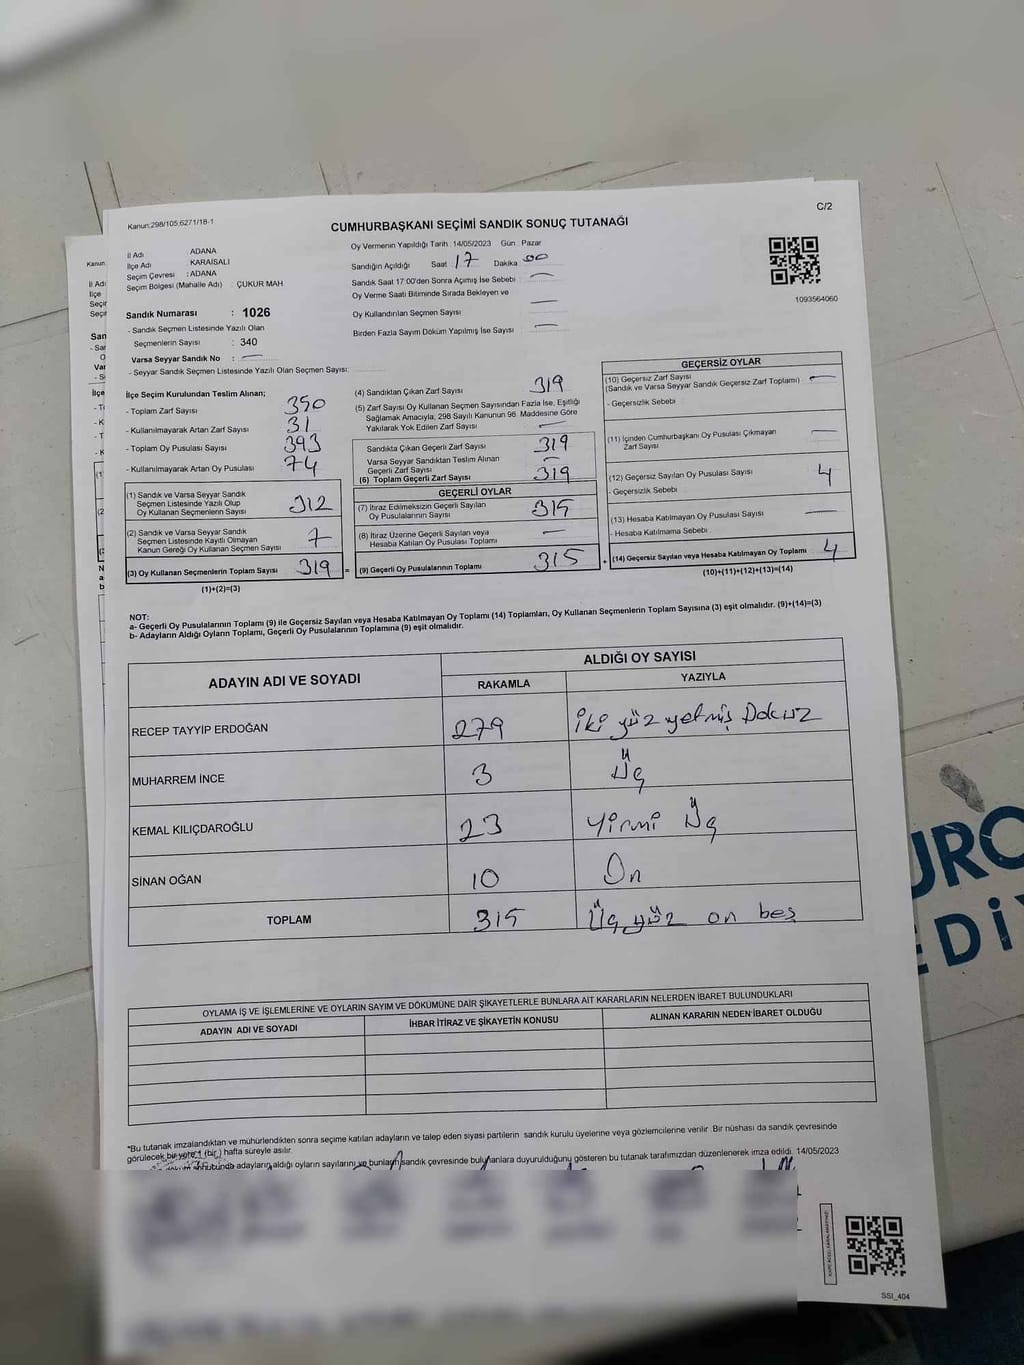 C/2
Kanun:298/105;6271/18-1
CUMHURBAŞKANI SEÇİMİ SANDIK SONUÇ TUTANAĞI
İl Adı : ADANA
İlçe Adı : KARAİSALI
Seçim Çevresi : ADANA
Seçim Bölgesi (Mahalle Adı) : ÇUKUR MAH
Oy Vermenin Yapıldığı Tarih :14/05/2023 Gün : Pazar
Sandığın Açıldığı Saat : 17 Dakika : 00
Sandık Saat 17:00'den Sonra Açımış İse Sebebi :
Oy Verme Saati Bitiminde Sırada Bekleyen ve
Oy Kullandırılan Seçmen Sayısı :
Birden Fazla Sayım Döküm Yapılmış İse Sayısı :
1093564060
Sandık Numarası : 1026
- Sandık Seçmen Listesinde Yazılı Olan
Seçmenlerin Sayısı : 340
Varsa Seyyar Sandık No :
- Seyyar Sandık Seçmen Listesinde Yazılı Olan Seçmen Sayısı:
İlçe Seçim Kurulundan Teslim Alınan;
- Toplam Zarf Sayısı 350
- Kullanılmayarak Artan Zarf Sayısı 31
- Toplam Oy Pusulası Sayısı 393
- Kullanılmayarak Artan Oy Pusulası 74
(1) Sandık ve Varsa Seyyar Sandık
Seçmen Listesinde Yazılı Olup
Oy Kullanan Seçmenlerin Sayısı 312
(2) Sandık ve Varsa Seyyar Sandık
Seçmen Listesinde Kayıtlı Olmayan
Kanun Gereği Oy Kullanan Seçmen Sayısı 7
(3) Oy Kullanan Seçmenlerin Toplam Sayısı 319 =
(1)+(2)=(3)
(4) Sandıktan Çıkan Zarf Sayısı 319
(5) Zarf Sayısı Oy Kullanan Seçmen Sayısından Fazla İse, Eşitliği
Sağlamak Amacıyla; 298 Sayılı Kanunun 98. Maddesine Göre
Yakılarak Yok Edilen Zarf Sayısı
Sandıkta Çıkan Geçerli Zarf Sayısı 319
Varsa Seyyar Sandıktan Teslim Alınan
Geçerli Zarf Sayısı
(6) Toplam Geçerli Zarf Sayısı 319
GEÇERLİ OYLAR
(7) İtiraz Edilmeksizin Geçerli Sayılan
Oy Pusulalarının Sayısı 315
(8) İtiraz Üzerine Geçerli Sayılan veya
Hesaba Katılan Oy Pusulası Toplamı
(9) Geçerli Oy Pusulalarının Toplamı 315 +
GEÇERSİZ OYLAR
(10) Geçersiz Zarf Sayısı
(Sandık ve Varsa Seyyar Sandık Geçersiz Zarf Toplamı)
- Geçersizlik Sebebi :
(11) İçinden Cumhurbaşkanı Oy Pusulası Çıkmayan
Zarf Sayısı
(12) Geçersiz Sayılan Oy Pusulası Sayısı 4
- Geçersizlik Sebebi :
(13) Hesaba Katılmayan Oy Pusulası Sayısı
- Hesaba Katılmama Sebebi :
(14) Geçersiz Sayılan veya Hesaba Katılmayan Oy Toplamı 4
(10)+(11)+(12)+(13)=(14)
NOT:
a- Geçerli Oy Pusulalarının Toplamı (9) ile Geçersiz Sayılan veya Hesaba Katılmayan Oy Toplamı (14) Toplamları, Oy Kullanan Seçmenlerin Toplam Sayısına (3) eşit olmalıdır. (9)+(14)=(3)
b- Adayların Aldığı Oyların Toplamı, Geçerli Oy Pusulalarının Toplamına (9) eşit olmalıdır.
ADAYIN ADI VE SOYADI
ALDIĞI OY SAYISI
RAKAMLA YAZIYLA
RECEP TAYYİP ERDOĞAN 279 iki yüz yetmiş Dokuz
MUHARREM İNCE 3 Üç
KEMAL KILIÇDAROĞLU 23 yirmi Üç
SİNAN OĞAN 10 On
TOPLAM 315 Üç yüz on beş
OYLAMA İŞ VE İŞLEMLERİNE VE OYLARIN SAYIM VE DÖKÜMÜNE DAİR ŞİKAYETLERLE BUNLARA AİT KARARLARIN NELERDEN İBARET BULUNDUKLARI
ADAYIN ADI VE SOYADI İHBAR İTİRAZ VE ŞİKAYETİN KONUSU ALINAN KARARIN NEDEN İBARET OLDUĞU
*Bu tutanak imzalandıktan ve mühürlendikten sonra seçime katılan adayların ve talep eden siyasi partilerin sandık kurulu üyelerine veya gözlemcilerine verilir. Bir nüshası da sandık çevresinde
görülecek bir yere 1 (bir) hafta süreyle asılır.
adayların aldığı oyların sayılarını ve bunların sandık çevresinde bulunanlara duyurulduğunu gösteren bu tutanak tarafımızdan düzenlenerek imza edildi. 14/05/2023
SSI_404